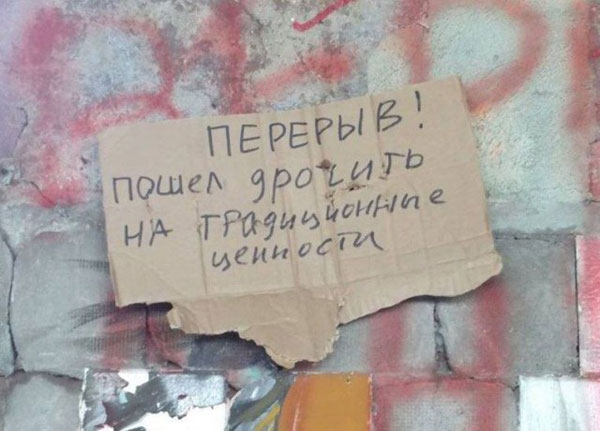 ПЕРЕРЫВ!
пошел дрочить
НА традиционные
ценности